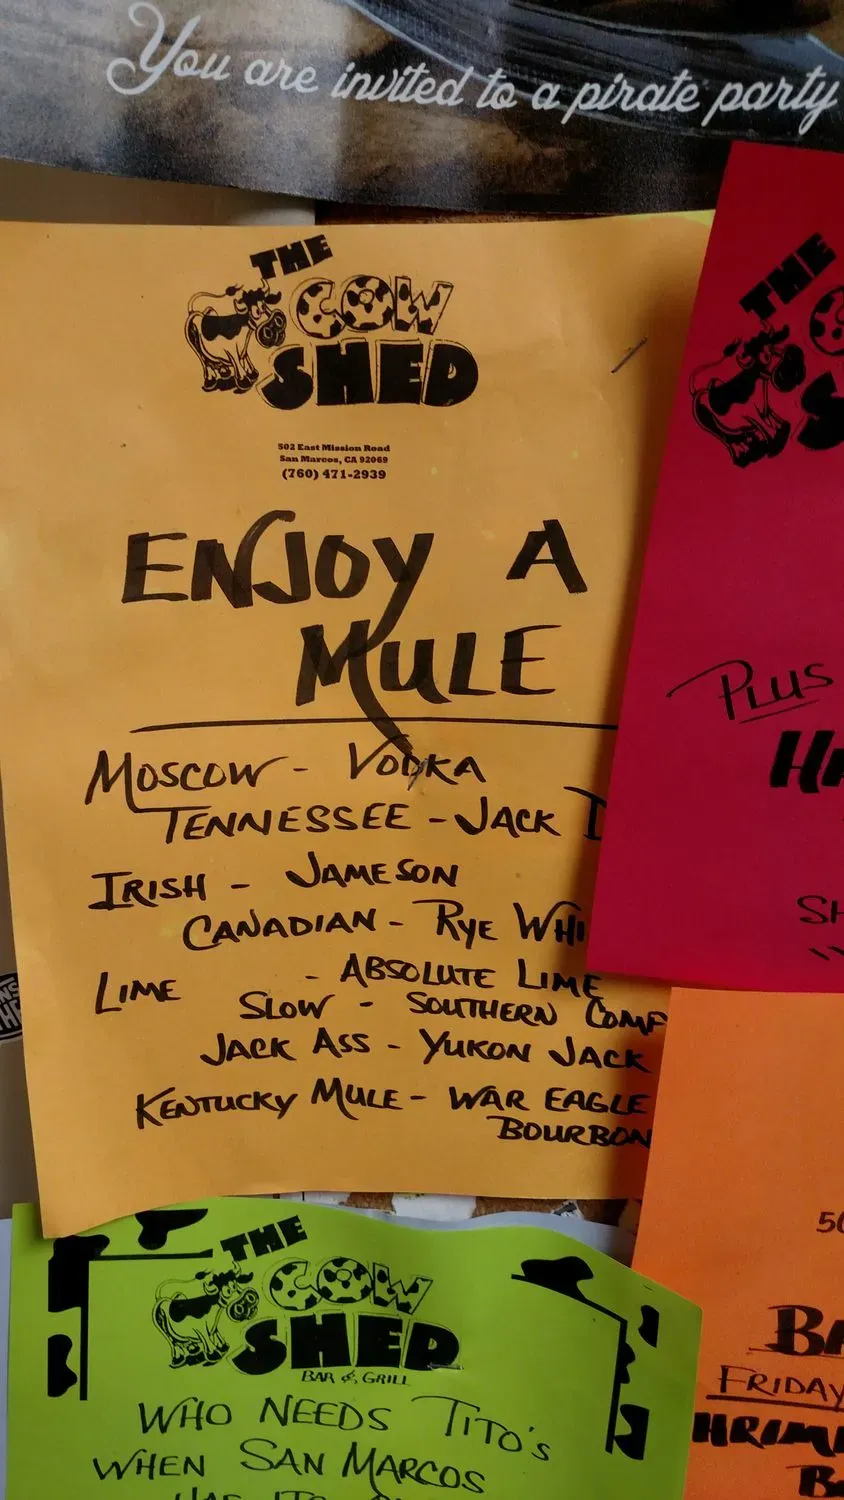 You are invited to a pirate party
THE
COW
SHED
502 East Mission Road
San Marcos, CA 92069
(760) 471-2939
ENJOY A
MULE
MOSCOW - VODKA
TENNESSEE - JACK
IRISH - JAMESON
CANADIAN - RYE WHI
LIME - ABSOLUTE LIME
SLOW - SOUTHERN COMF
JACK ASS - YUKON JACK
KENTUCKY MULE - WAR EAGLE
BOURBON
THE
PLUS
HA
SH
THE
COW
SHED
BAR & GRILL
WHO NEEDS TITO'S
WHEN SAN MARCOS
50
BA
FRIDAY
HRIM
B